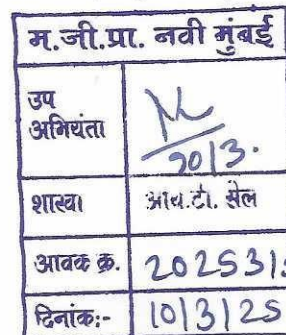 म.जी.प्रा. नवी मुंबई
उप
अभियंता
10/3.
शाखा आय.टी. सेल
आवक क्र. 202531
दिनांक:- 10/3/25